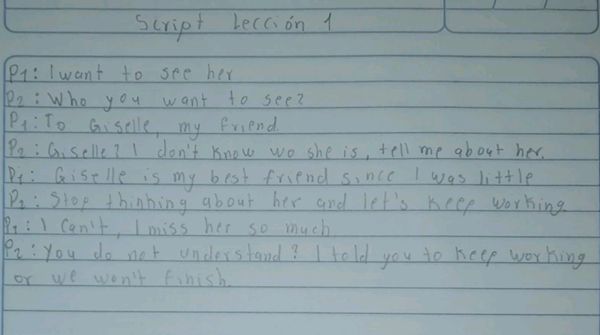 Script Lección 1
P1: I want to see her
P2: Who you want to see?
P1: To Giselle, my friend.
P2: Giselle? I don't know wo she is, tell me about her.
P1: Giselle is my best friend since I was little
P2: Stop thinking about her and let's keep working.
P1: I can't, I miss her so much
P2: You do not understand? I told you to keep working
or we won't finish.